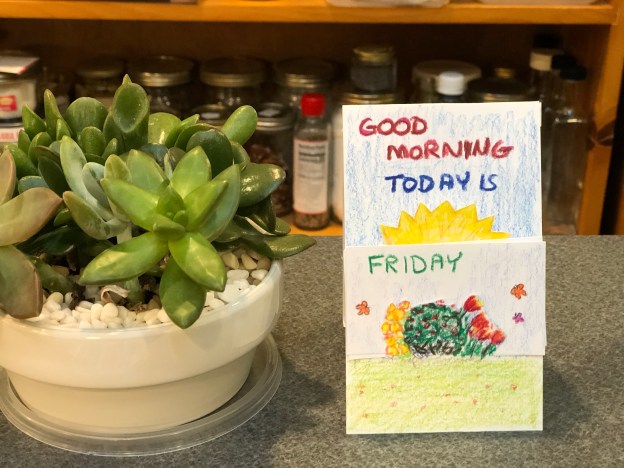 GOOD
MORNING
TODAY IS
FRIDAY